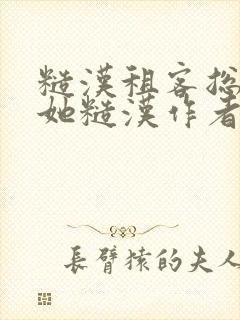 糙漢租客總
她糙漢作者
長臂猿的夫人